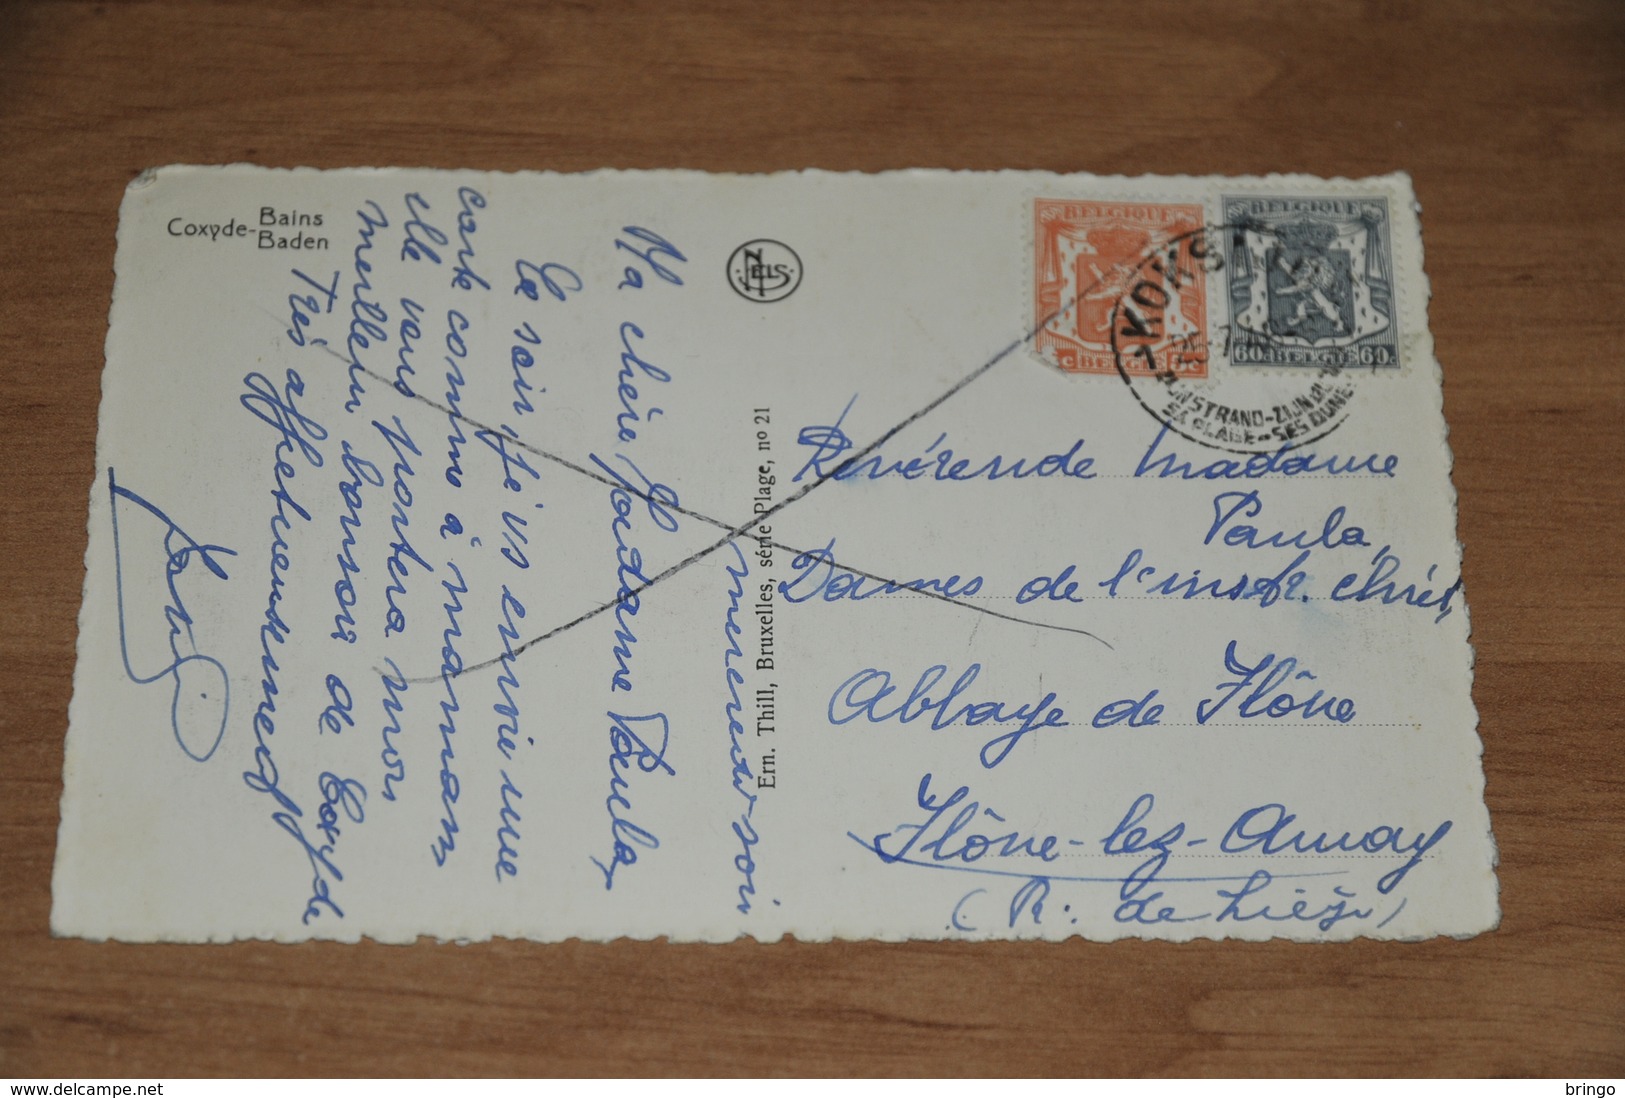 Coxyde-Bains
Baden
NELS
Ern. Thill, Bruxelles, série Plage, nº 21
mercredi soir
Ma chère Madame Paula,
Ce soir, je vs envoie une
carte comme à maman
elle vous portera mon
meilleur bonsoir de Coxyde
Très affectueusement
BELGIQUE
BELGIE
BELGIQUE
60c BELGIE 60c
KOKS
ZIJN STRAND-ZIJN
SA PLAGE-SES DUNES
Révérende Madame
Paula,
Dames de l'instr. chrét.
Abbaye de Flône
Flône-lez-Amay
(Pr. de Liège)
delcampe.net
bringo